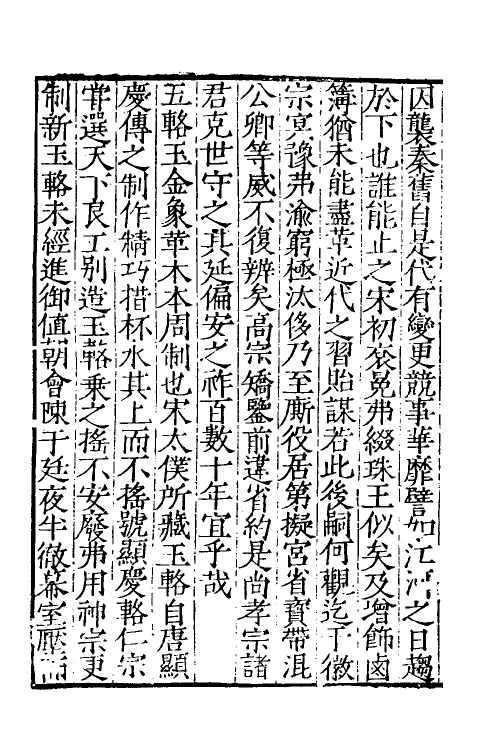 因襲秦舊自是代有變更競事華靡譬如江河之日趨
於下也誰能止之宋初袞冕弗綴珠玉似矣及增飾鹵
簿猶未能盡革近代之習貽謀若此後嗣何觀迄于徽
宗㝠豫弗渝窮極汰侈乃至廝役居第擬宮省寶帶混
公卿等威不復辨矣高宗矯鑒前違省約是尚孝宗諸
君克世守之其延偏安之祚百數十年宜乎哉
五輅玉金象革木本周制也宋太僕所藏玉輅自唐顯
慶傳之制作精巧措杯水其上而不搖號顯慶輅仁宗
甞選天下良工别造玉輅乗之搖不安廢弗用神宗更
制新玉輅未經進御值朝會陳于廷夜半徹幕室壓而